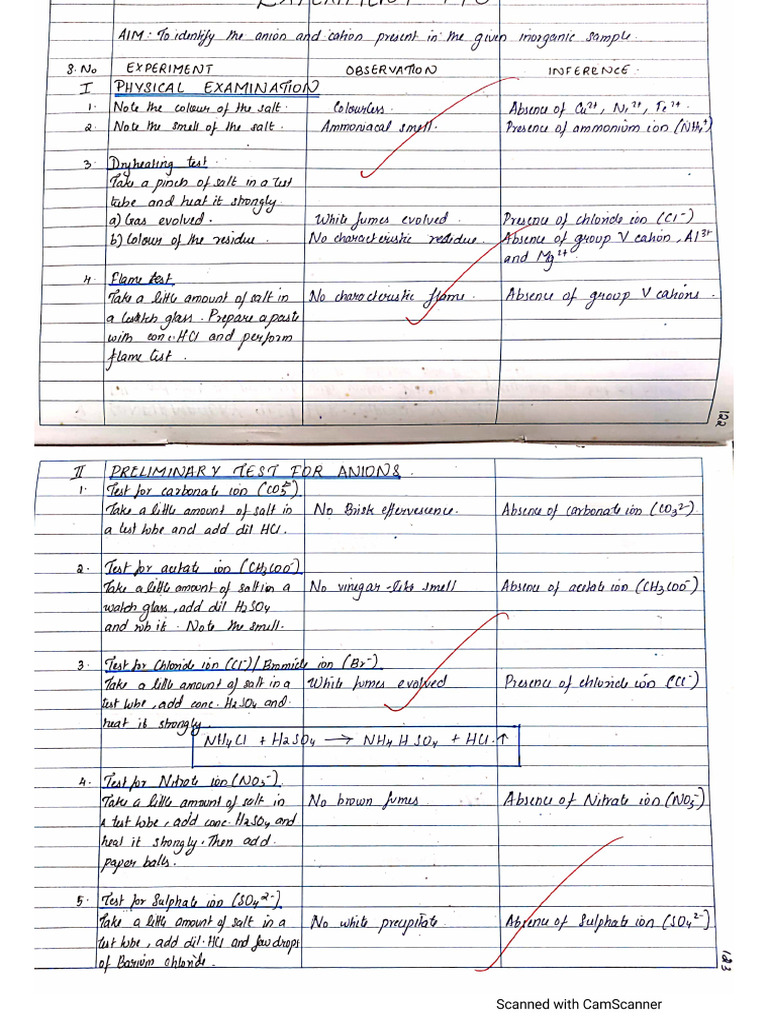 AIM: To identify the anion and cation present in the given inorganic sample.
S.No EXPERIMENT OBSERVATION INFERENCE
I PHYSICAL EXAMINATION
1. Note the colour of the salt. Colourless. Absence of Cu²⁺, Ni²⁺, Fe²⁺
2. Note the smell of the salt. Ammoniacal smell. Presence of ammonium ion (NH₄⁺)
3. Dryheating test.
Take a pinch of salt in a test
tube and heat it strongly
a) Gas evolved. White fumes evolved. Presence of chloride ion (Cl⁻)
b) Colour of the residue. No characteristic residue. Absence of group V cation, Al³⁺
and Mg²⁺.
4. Flame test
Take a little amount of salt in No characteristic flame Absence of group V cations.
a watch glass. Prepare a paste
with conc. HCl and perform
flame test.
122
II PRELIMINARY TEST FOR ANIONS.
1. Test for carbonate ion (CO₃²⁻)
Take a little amount of salt in No Brisk effervescence. Absence of carbonate ion (CO₃²⁻)
a test tube and add dil HCl.
2. Test for acetate ion (CH₃COO⁻)
Take a little amount of salt in a No vinegar-like smell Absence of acetate ion (CH₃COO⁻)
watch glass, add dil H₂SO₄
and rub it. Note the smell.
3. Test for Chloride ion (Cl⁻)/Bromide ion (Br⁻)
Take a little amount of salt in a White fumes evolved Presence of chloride ion (Cl⁻)
test tube, add conc. H₂SO₄ and
heat it strongly.
NH₄Cl + H₂SO₄ → NH₄HSO₄ + HCl.↑
4. Test for Nitrate ion (NO₃⁻).
Take a little amount of salt in No brown fumes Absence of Nitrate ion (NO₃⁻)
a test tube, add conc. H₂SO₄ and
heat it strongly. Then add
paper balls.
5. Test for Sulphate ion (SO₄²⁻)
Take a little amount of salt in a No white precipitate. Absence of Sulphate ion (SO₄²⁻)
test tube, add dil. HCl and few drops
of Barium Chloride.
123
Scanned with CamScanner